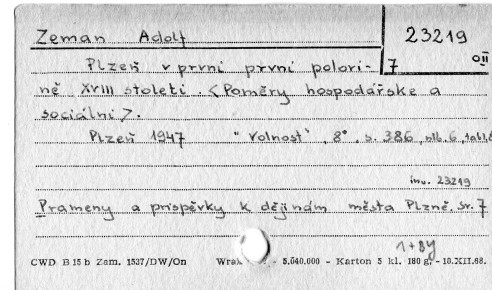 Zeman Adolf 23219
Plzeň v první první polovi- 7 0II
ně XVIII století. <Poměry hospodářske a
sociální>.
Plzeň 1947 "Volnost", 8°, s. 386, příl. 6, tabl. 8
inv. 23219
Prameny a príspěvky k dějinám města Plzně. Sv. 7
1+BY
CWD B 15 b Zam. 1537/DW/On Wrak - 5,040.000 - Karton 5 kl. 180 g. - 10.XII.68.